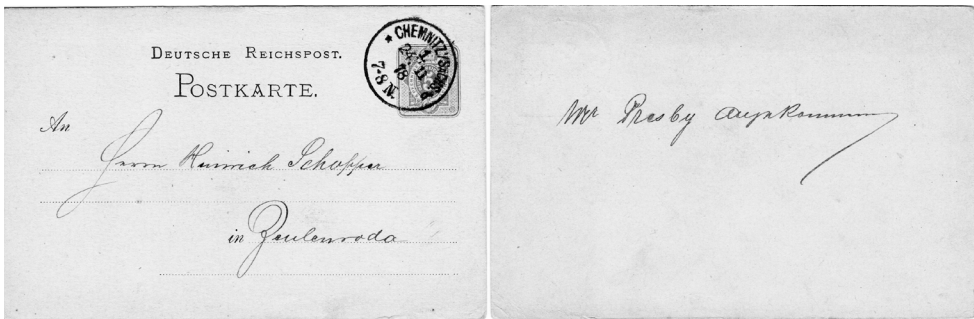 DEUTSCHE REICHSPOST.
POSTKARTE.
* CHEMNITZ (SACHS)
24 11
78
7-8 N.
An
Herrn Heinrich Schopper
in Zeulenroda
Mr Presby angekommen